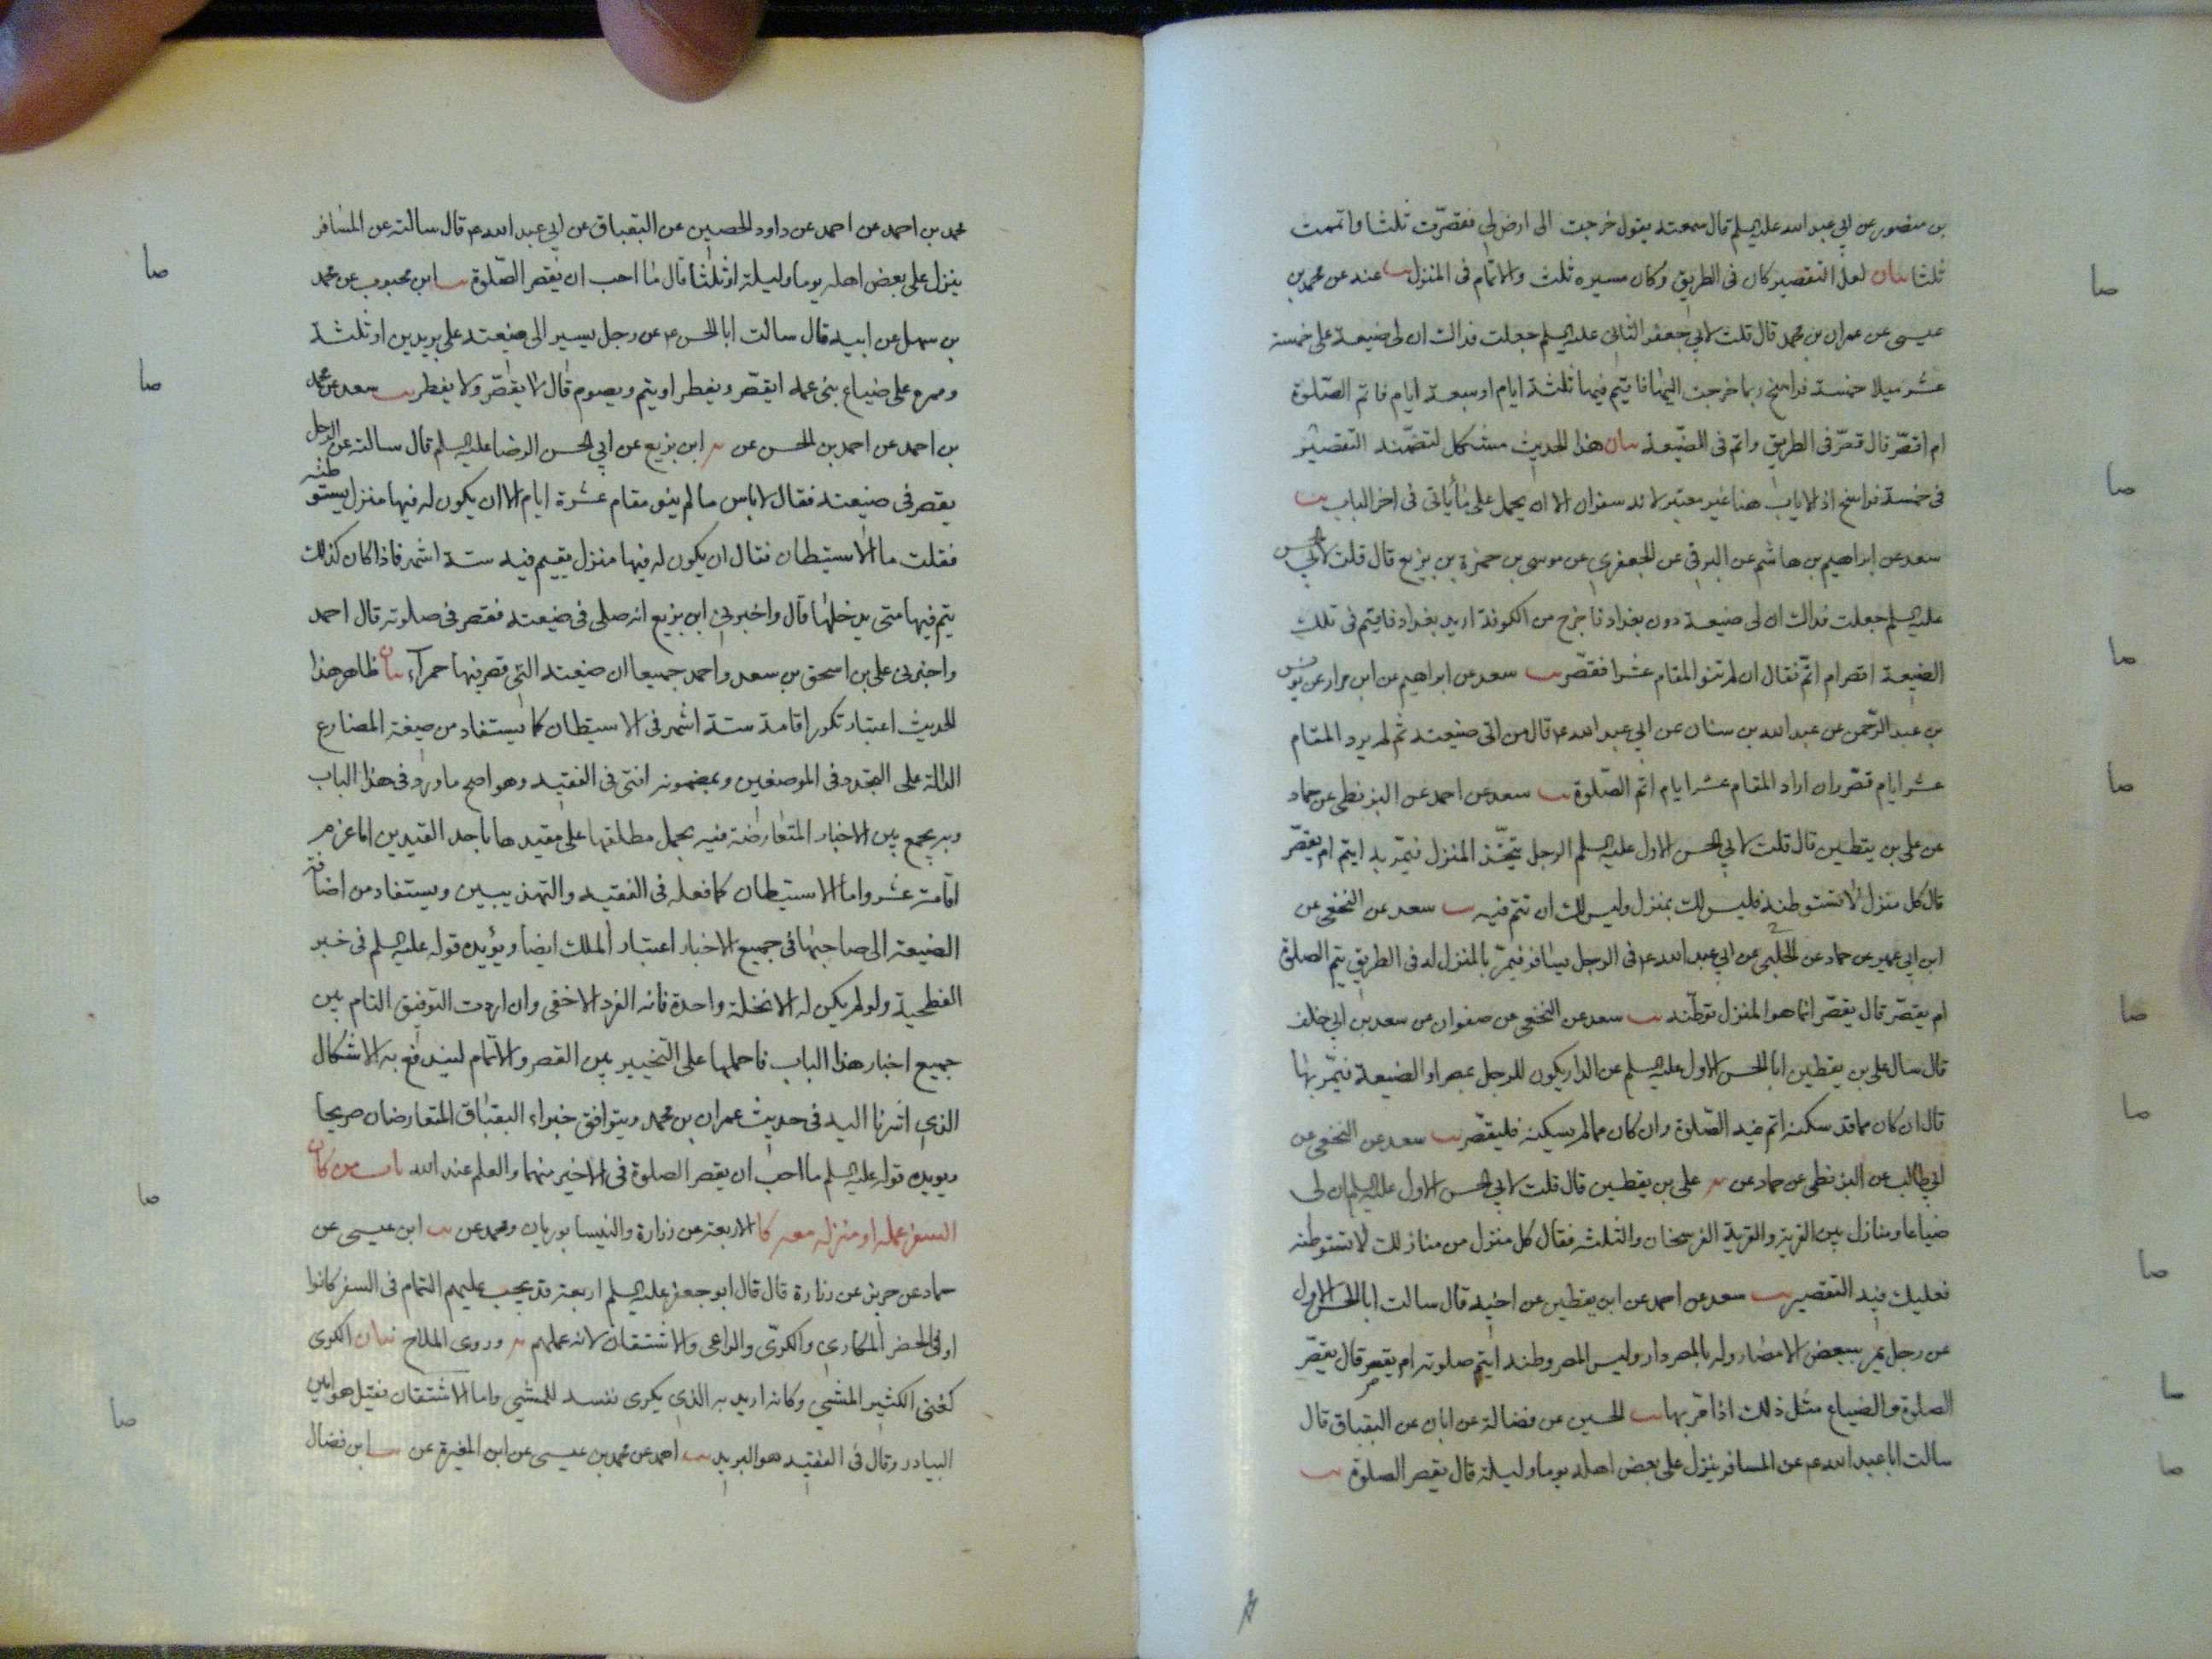 بن منصور عن ابي عبد الله عليه السلم قال سمعته يقول خرجت الى ارض لي فقصّرت ثلثا واتممت
ثلثا بيان لعل التقصير كان فى الطريق وكان مسيره ثلث والاتمام فى المنزل يب عنه عن محمد بن
عيسى عن عمران بن محمد قال قلت لابي جعفر الثانى عليه السلم جعلت فداك ان لى ضيعة على خمسة
عشر ميلا خمسة فراسخ ربما خرجت اليها فاقيم فيها ثلثة ايام او سبعة ايام فاتم الصّلوة
ام اقصّر قال قصّر فى الطريق واتم فى الضيعة بيان هذا الحديث مشكل لتضمّنه التقصير
فى خمسة فراسخ اذ الاياب هنا غير معتبر لانه سفران الا ان يحمل على ما يأتى فى اخر الباب يب
سعد عن ابراهيم بن هاشم عن البرقي عن الجعفري عن موسى بن حمزة بن بزيع قال قلت لابي الحسن
عليه السلم جعلت فداك ان لى ضيعة دون بغداد فاخرج من الكوفة اريد بغداد فاقيم فى تلك
الضيعة اقصر ام اتمّ فقال ان لم تنو المقام عشرا فقصّر يب سعد عن ابراهيم عن ابن مرار عن يونس
بن عبد الرّحمن عن عبد الله بن سنان عن ابي عبد الله ع قال من اتى ضيعته ثم لم يرد المقام
عشر ايام قصّر وان اراد المقام عشر ايام اتم الصّلوة يب سعد عن احمد عن البزنطى عن حماد
عن على بن يقطين قال قلت لابي الحسن الاول عليه السلم الرجل يتّخذ المنزل فيمرّ به ايتم ام يقصّر
قال كل منزل لا تستوطنه فليس لك بمنزل وليس لك ان تتم فيه يب سعد عن النخعى عن
ابن ابي عمير عن حماد عن الحلبى عن ابي عبد الله ع فى الرجل يسافر فيمرّ بالمنزل له فى الطريق يتم الصلوة
ام يقصّر قال يقصّر انما هو المنزل توطّنه يب سعد عن النخعى عن صفوان عن سعد بن ابي خلف
قال سال على بن يقطين ابا الحسن الاول عليه السلم عن الدار يكون للرجل بمصر او الضيعة فيمّر بها
قال ان كان مما قد سكنه اتم فيه الصّلوة وان كان مما لم يسكنه فليقصّر يب سعد عن النخعى عن
ابي طالب عن البزنطى عن حماد عن على بن يقطين قال قلت لابي الحسن الاول عليه السلم ان لى
ضياعا ومنازل بين القرية والقرية الفرسخان والثلثه فقال كل منزل من منازلك لا تستوطنه
فعليك فيه التقصير يب سعد عن احمد عن ابن يقطين عن اخيه قال سالت ابا الحسن الاول
عن رجل يمر ببعض الامصار وله بالمصر دار وليس المصر وطنه ايتم صلوته ام يقصر قال يقصّر
الصلوة والضياع مثل ذلك اذا مر بها يب الحسين عن فضالة عن ابان عن البقباق قال
سالت ابا عبد الله ع عن المسافر ينزل على بعض اهله يوما وليلة قال يقصر الصلوة يب
محمد بن احمد عن احمد عن داود الحصين عن البقباق عن ابي عبد الله ع قال سالته عن المسافر
ينزل على بعض اهله يوما وليلة او ثلثا قال ما احب ان يقصر الصّلوة يب ابن محبوب عن محمد
بن سهل عن ابيه قال سالت ابا الحسن ع عن رجل يسير الى ضيعته على بريدين او ثلثة
وممره على ضياع بنى عمه ايقصّر ويفطر او يتم ويصوم قال لا يقصّر ولا يفطر يب سعد عن محمد
بن احمد عن احمد بن الحسن عن ابن بزيع عن ابي الحسن الرضا عليه السلم قال سالته عن الرجل
يقصر فى ضيعته فقال لا باس ما لم ينو مقام عشرة ايام الا ان يكون له فيها منزل يستوطنه
فقلت ما الاستيطان فقال ان يكون له فيها منزل يقيم فيه ستة اشهر فاذا كان كذلك
يتم فيها متى يدخلها قال واخبرنى ابن بزيع انه صلى فى ضيعته فقصر فى صلوته قال احمد
واخبرنى على بن اسحق بن سعد واحمد جميعا ان ضيعته التي قصر فيها حمراء بيان ظاهر هذا
الحديث اعتبار تكرر اقامة ستة اشهر فى الاستيطان كما يستفاد من صيغة المضارع
الدالة على التجدد فى الموضعين وبمضمونه افتى فى الفقيه وهو اصح ما ورد فى هذا الباب
وبه يجمع بين الاخبار المتعارضة فيه بحمل مطلقها على مقيدها باحد القيدين اما عزم
اقامة عشر واما الاستيطان كما فعله فى الفقيه والتهذيبين ويستفاد من اضافة
الضيعة الى صاحبها فى جميع الاخبار اعتبار الملك ايضا ويؤيده قوله عليه السلم فى خبر
الفطحية ولو لم يكن له الا نخلة واحدة فانه الفرد الاخفى وان اردت التوفيق التام بين
جميع اخبار هذا الباب فاحملها على التخيير بين القصر والاتمام ليندفع به الاشكال
الذي اشرنا اليه فى حديث عمران بن محمد ويتوافق خبراء البقباق المتعارضان صريحا
ويويده قوله عليه السلم ما احب ان يقصر الصلوة فى الاخير منهما والعلم عند الله باب من كان
السفر عمله او منزله معه كا الاربعة عن زرارة والنيسابوريان ومحمد عن يب ابن عيسى عن
حماد عن حريز عن زرارة قال قال ابو جعفر عليه السلم اربعة قد يجب عليهم التمام فى السفر كانوا
او فى الحضر المكاري والكرّى والراعى والاشتقان لانه عملهم وروى الملاح بيان الكرى
كغنى الكثير المشى وكانه اريد به الذي يكرى نفسه للمشي واما الاشتقان فقيل هو امين
البيادر وقال فى الفقيه هو البريد يب احمد عن محمد بن عيسى عن ابن المغيرة عن يب ابن فضال